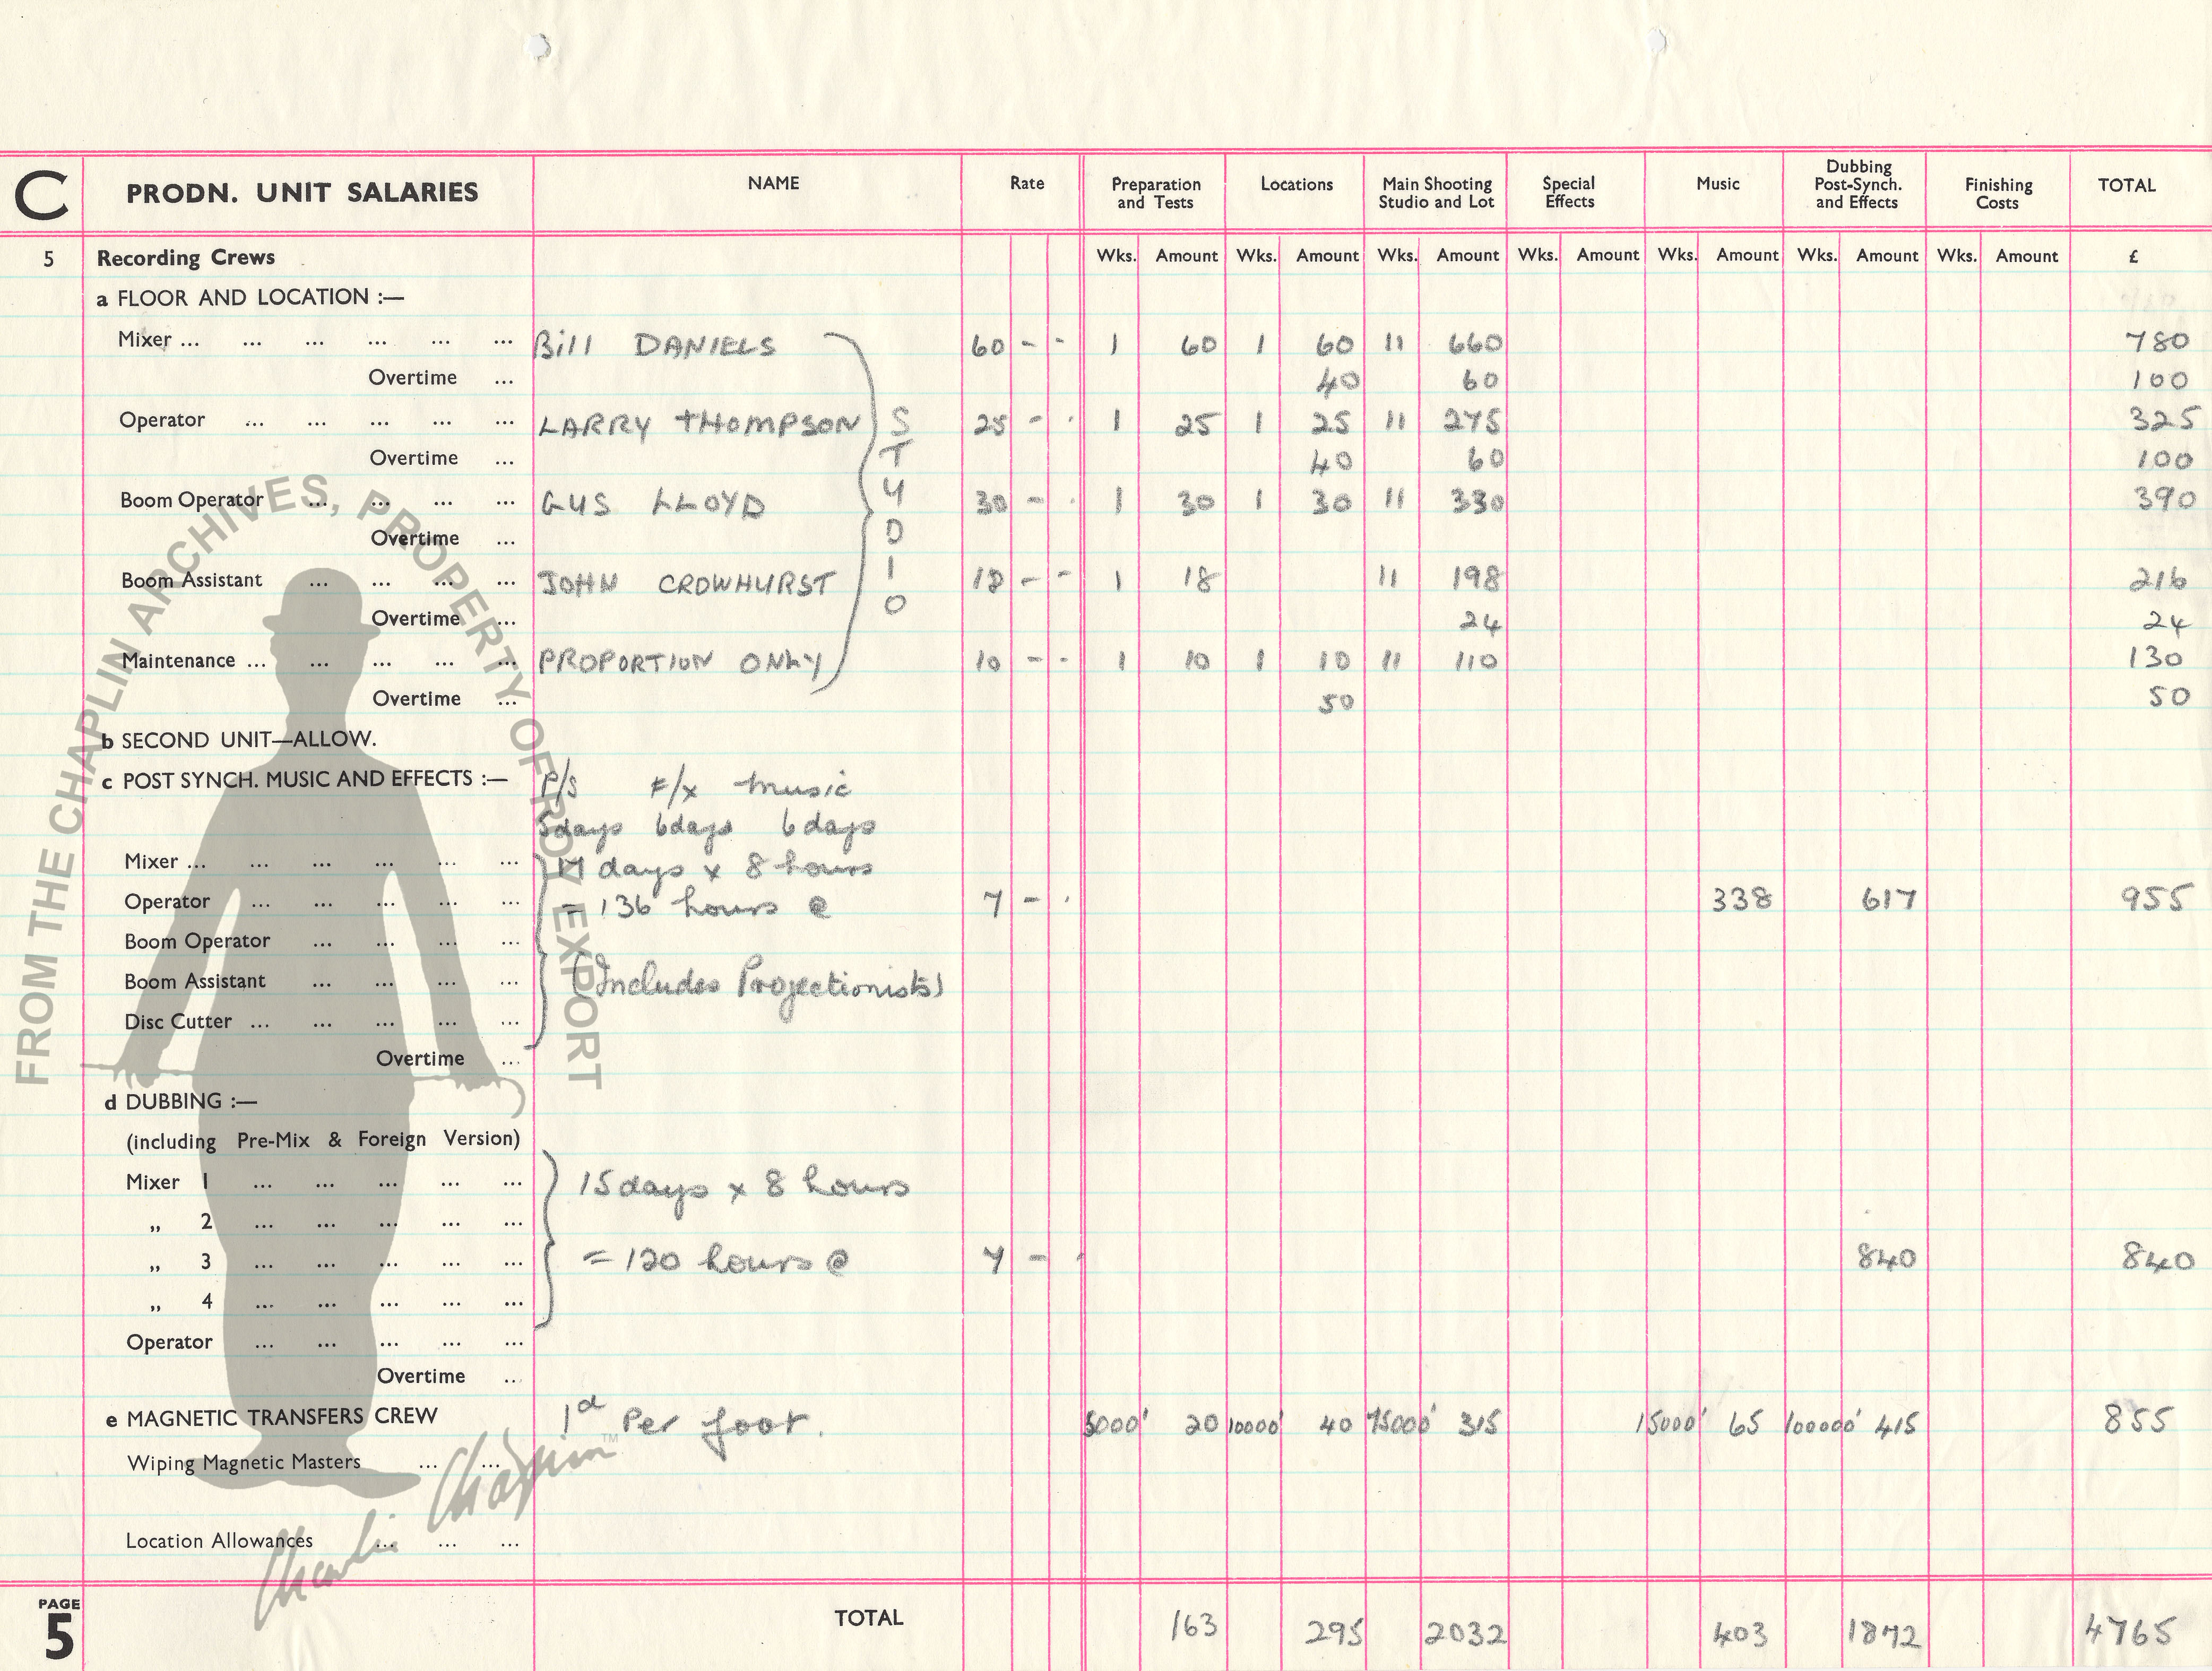 C PRODN. UNIT SALARIES NAME Rate Preparation and Tests Locations Main Shooting Studio and Lot Special Effects Music Dubbing Post-Synch. and Effects Finishing Costs TOTAL
5 Recording Crews Wks. Amount Wks. Amount Wks. Amount Wks. Amount Wks. Amount Wks. Amount Wks. Amount £
a FLOOR AND LOCATION :—
Mixer ... ... ... ... ... ... Bill DANIELS 60 - - 1 60 1 60 11 660 780
Overtime ... 40 60 100
Operator ... ... ... ... ... LARRY THOMPSON STUDIO 25 - - 1 25 1 25 11 275 325
Overtime ... 40 60 100
Boom Operator ... ... ... ... GUS LLOYD 30 - - 1 30 1 30 11 330 390
Overtime ...
Boom Assistant ... ... ... ... JOHN CROWHURST 18 - - 1 18 11 198 216
Overtime ... 24 24
Maintenance ... ... ... ... ... PROPORTION ONLY 10 - - 1 10 1 10 11 110 130
Overtime ... 50 50
b SECOND UNIT—ALLOW.
c POST SYNCH. MUSIC AND EFFECTS :— P/S F/x music
5days 6days 6days
Mixer ... ... ... ... ... ... 17 days x 8 hours
Operator ... ... ... ... ... = 136 hours @ 7 - - 338 617 955
Boom Operator ... ... ... ...
Boom Assistant ... ... ... ... (Includes Projectionists)
Disc Cutter ... ... ... ... ...
Overtime ...
d DUBBING :—
(including Pre-Mix & Foreign Version)
Mixer 1 ... ... ... ... ... 15days x 8 hours
,, 2 ... ... ... ... ...
,, 3 ... ... ... ... ... = 120 hours @ 7 - - 840 840
,, 4 ... ... ... ... ...
Operator ... ... ... ... ...
Overtime ...
e MAGNETIC TRANSFERS CREW 1d Per foot. 5000' 20 10000' 40 75000' 315 15000' 65 100000' 415 855
Wiping Magnetic Masters ... ...
Location Allowances ... ... ...
PAGE 5 TOTAL 163 295 2032 403 1872 4765
FROM THE CHAPLIN ARCHIVES, PROPERTY OF ROY EXPORT
Charlie Chaplin™